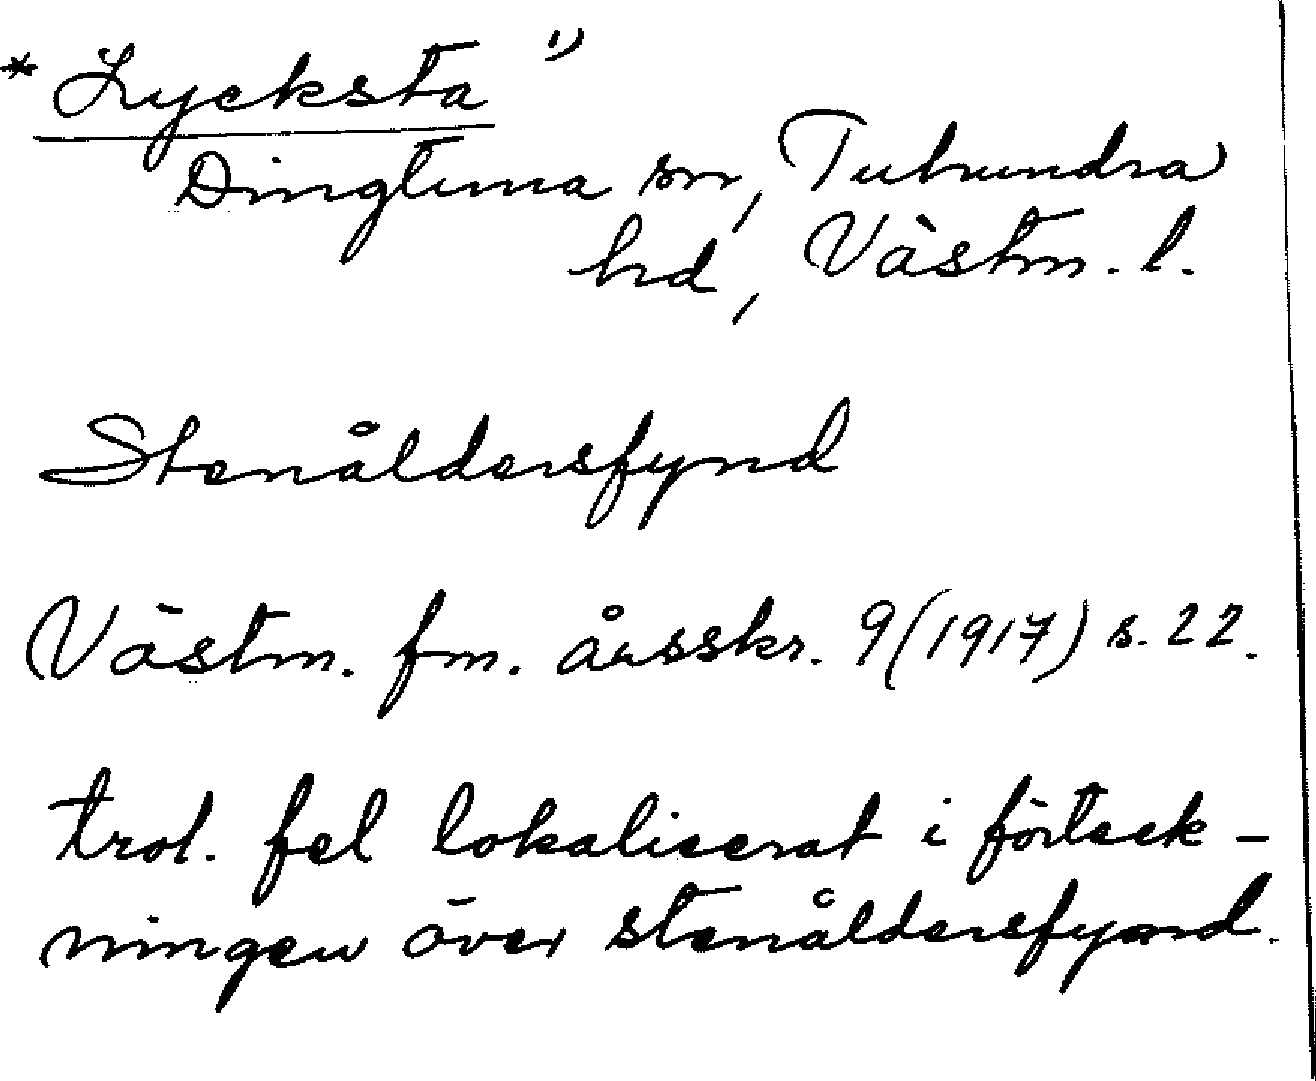 * Lycksta 1)
Dingtuna sn, Tuhundra
hd, Västm. l.
Stenåldersfynd
Västm. fm. årsskr. 9 (1917) s. 22.
trol. fel lokaliserat i förteck-
ningen över stenåldersfynd.